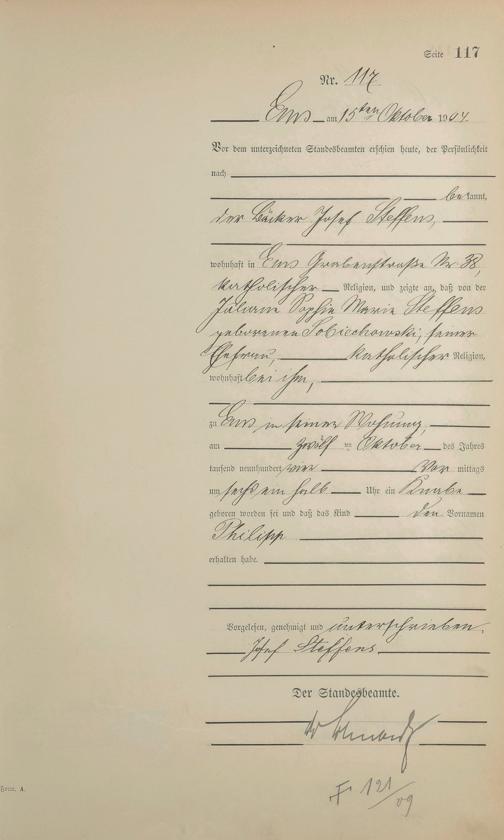 Seite 117
Nr. 117
Ems am 15ten Oktober 1904.
Vor dem unterzeichneten Standesbeamten erschien heute, der Persönlichkeit
nach
bekannt,
der Bäcker Josef Steffens,
wohnhaft in Ems Grabenstraße Nr 38,
katholischer Religion, und zeigte an, daß von der
Juliane Sophie Marie Steffens
geborenen Sobiechowski, seiner
Ehefrau, katholischer Religion,
wohnhaft bei ihm,
zu Ems in seiner Wohnung,
am zwölf ten Oktober des Jahres
tausend neunhundert vier Vor mittags
um sechs ein halb Uhr ein Knabe
geboren worden sei und daß das Kind den Vornamen
Philipp
erhalten habe.
Vorgelesen, genehmigt und unterschrieben.
Josef Steffens
Der Standesbeamte.
121/09
Form. A.